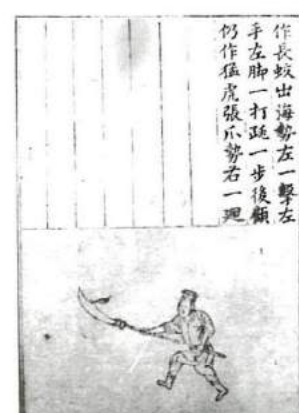 作長蛟出海勢左一擊左
手左脚一打跳一步後顧
仍作猛虎張爪勢右一廻